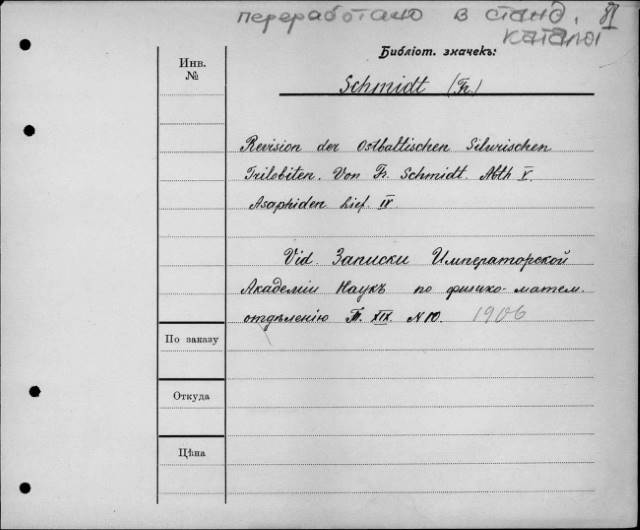 переработано в станд.
каталог
Библіот. значекъ:
Инв.
№
Schmidt (Fr.)
Revision der Ostbaltischen Silurischen
Trilobiten. Von Fr. Schmidt. Abth V.
Asaphiden Lief. IV
Vid. Записки Императорской
Академіи Наукъ по физико-матем.
отдѣленію Т. XIX. N 10. 1906
По заказу
Откуда
Цѣна